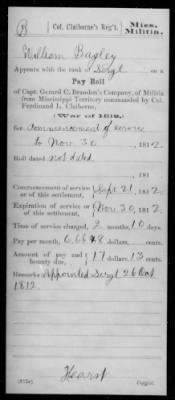 B Col. Claiborne's Reg't. Miss. Militia.
William Bagley
Appears with the rank of Sergt on a
Pay Roll
of Capt. Gerard C. Brandon's Company, of Militia
from Mississippi Territory commanded by Col.
Ferdinand L. Claiborne,
(War of 1812,)
for commencement of service
to Nov 30, 1812
Roll dated not dated
, 181
Commencement of service or of this settlement, Sept 21, 1812.
Expiration of service or of this settlement, Nov 30, 1812.
Time of service charged, 2 months, 10 days.
Pay per month, dollars, cents.
Amount of pay and bounty due, 17 dollars, 13 cents.
Remarks: Appointed Sergt 26 Oct
1812.
Hearst
Copyist.